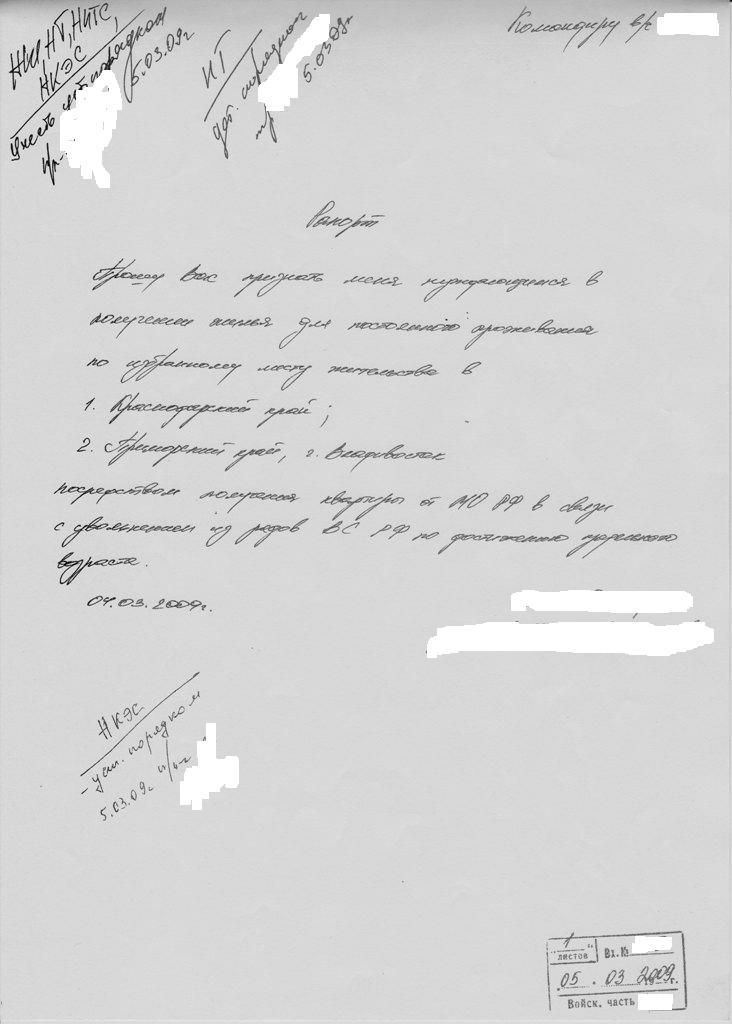 НШ, НТ, НИТС,
НКЭС
5.03.09г
ИТ
5.03.09г
Командиру в/ч
Рапорт
Прошу Вас признать меня нуждающимся в
получении жилья для постоянного проживания
по избранному месту жительства в
1. Краснодарский край;
2. Приморский край, г. Владивосток
посредством получения квартиры от МО РФ в связи
с увольнением из рядов ВС РФ по достижению предельного
возраста.
04.03.2009г.
НКЭС
- уст. порядком
5.03.09г п/п-к
1
листов
Вх.№
05 . 03 2009 г.
Войск. часть